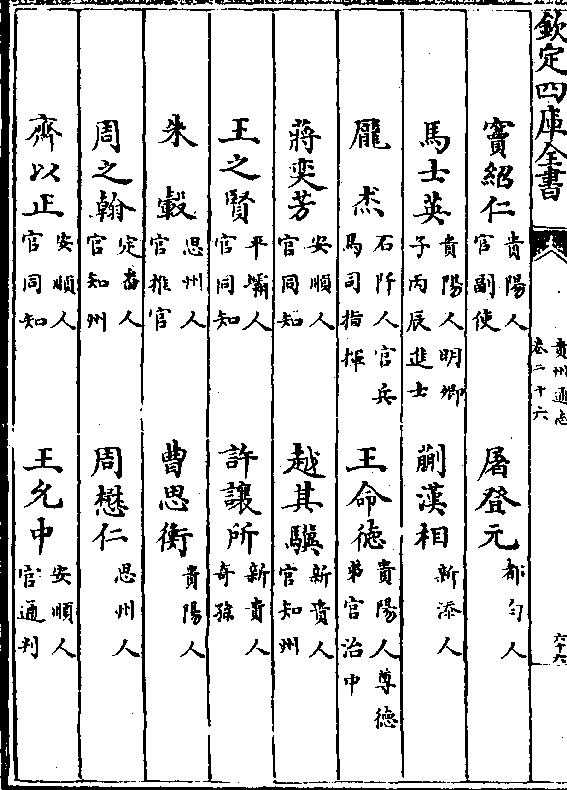 欽定四庫全書
貴州通志
卷二十六
六十六
竇紹仁 貴陽人官副使 屠登元 都勻人
馬士英 貴陽人明卿子丙辰進士 蒯漢相 新添人
龎杰 石阡人官兵馬司指揮 王命德 貴陽人尊德弟官治中
蔣奕芳 安順人官同知 越其驥 新貴人官知州
王之賢 平壩人官同知 許讓所 新貴人奇孫
朱轂 思州人官推官 曹思衡 貴陽人
周之翰 定番人官知州 周懋仁 思州人
齊以正 安順人官同知 王允中 安順人官通判